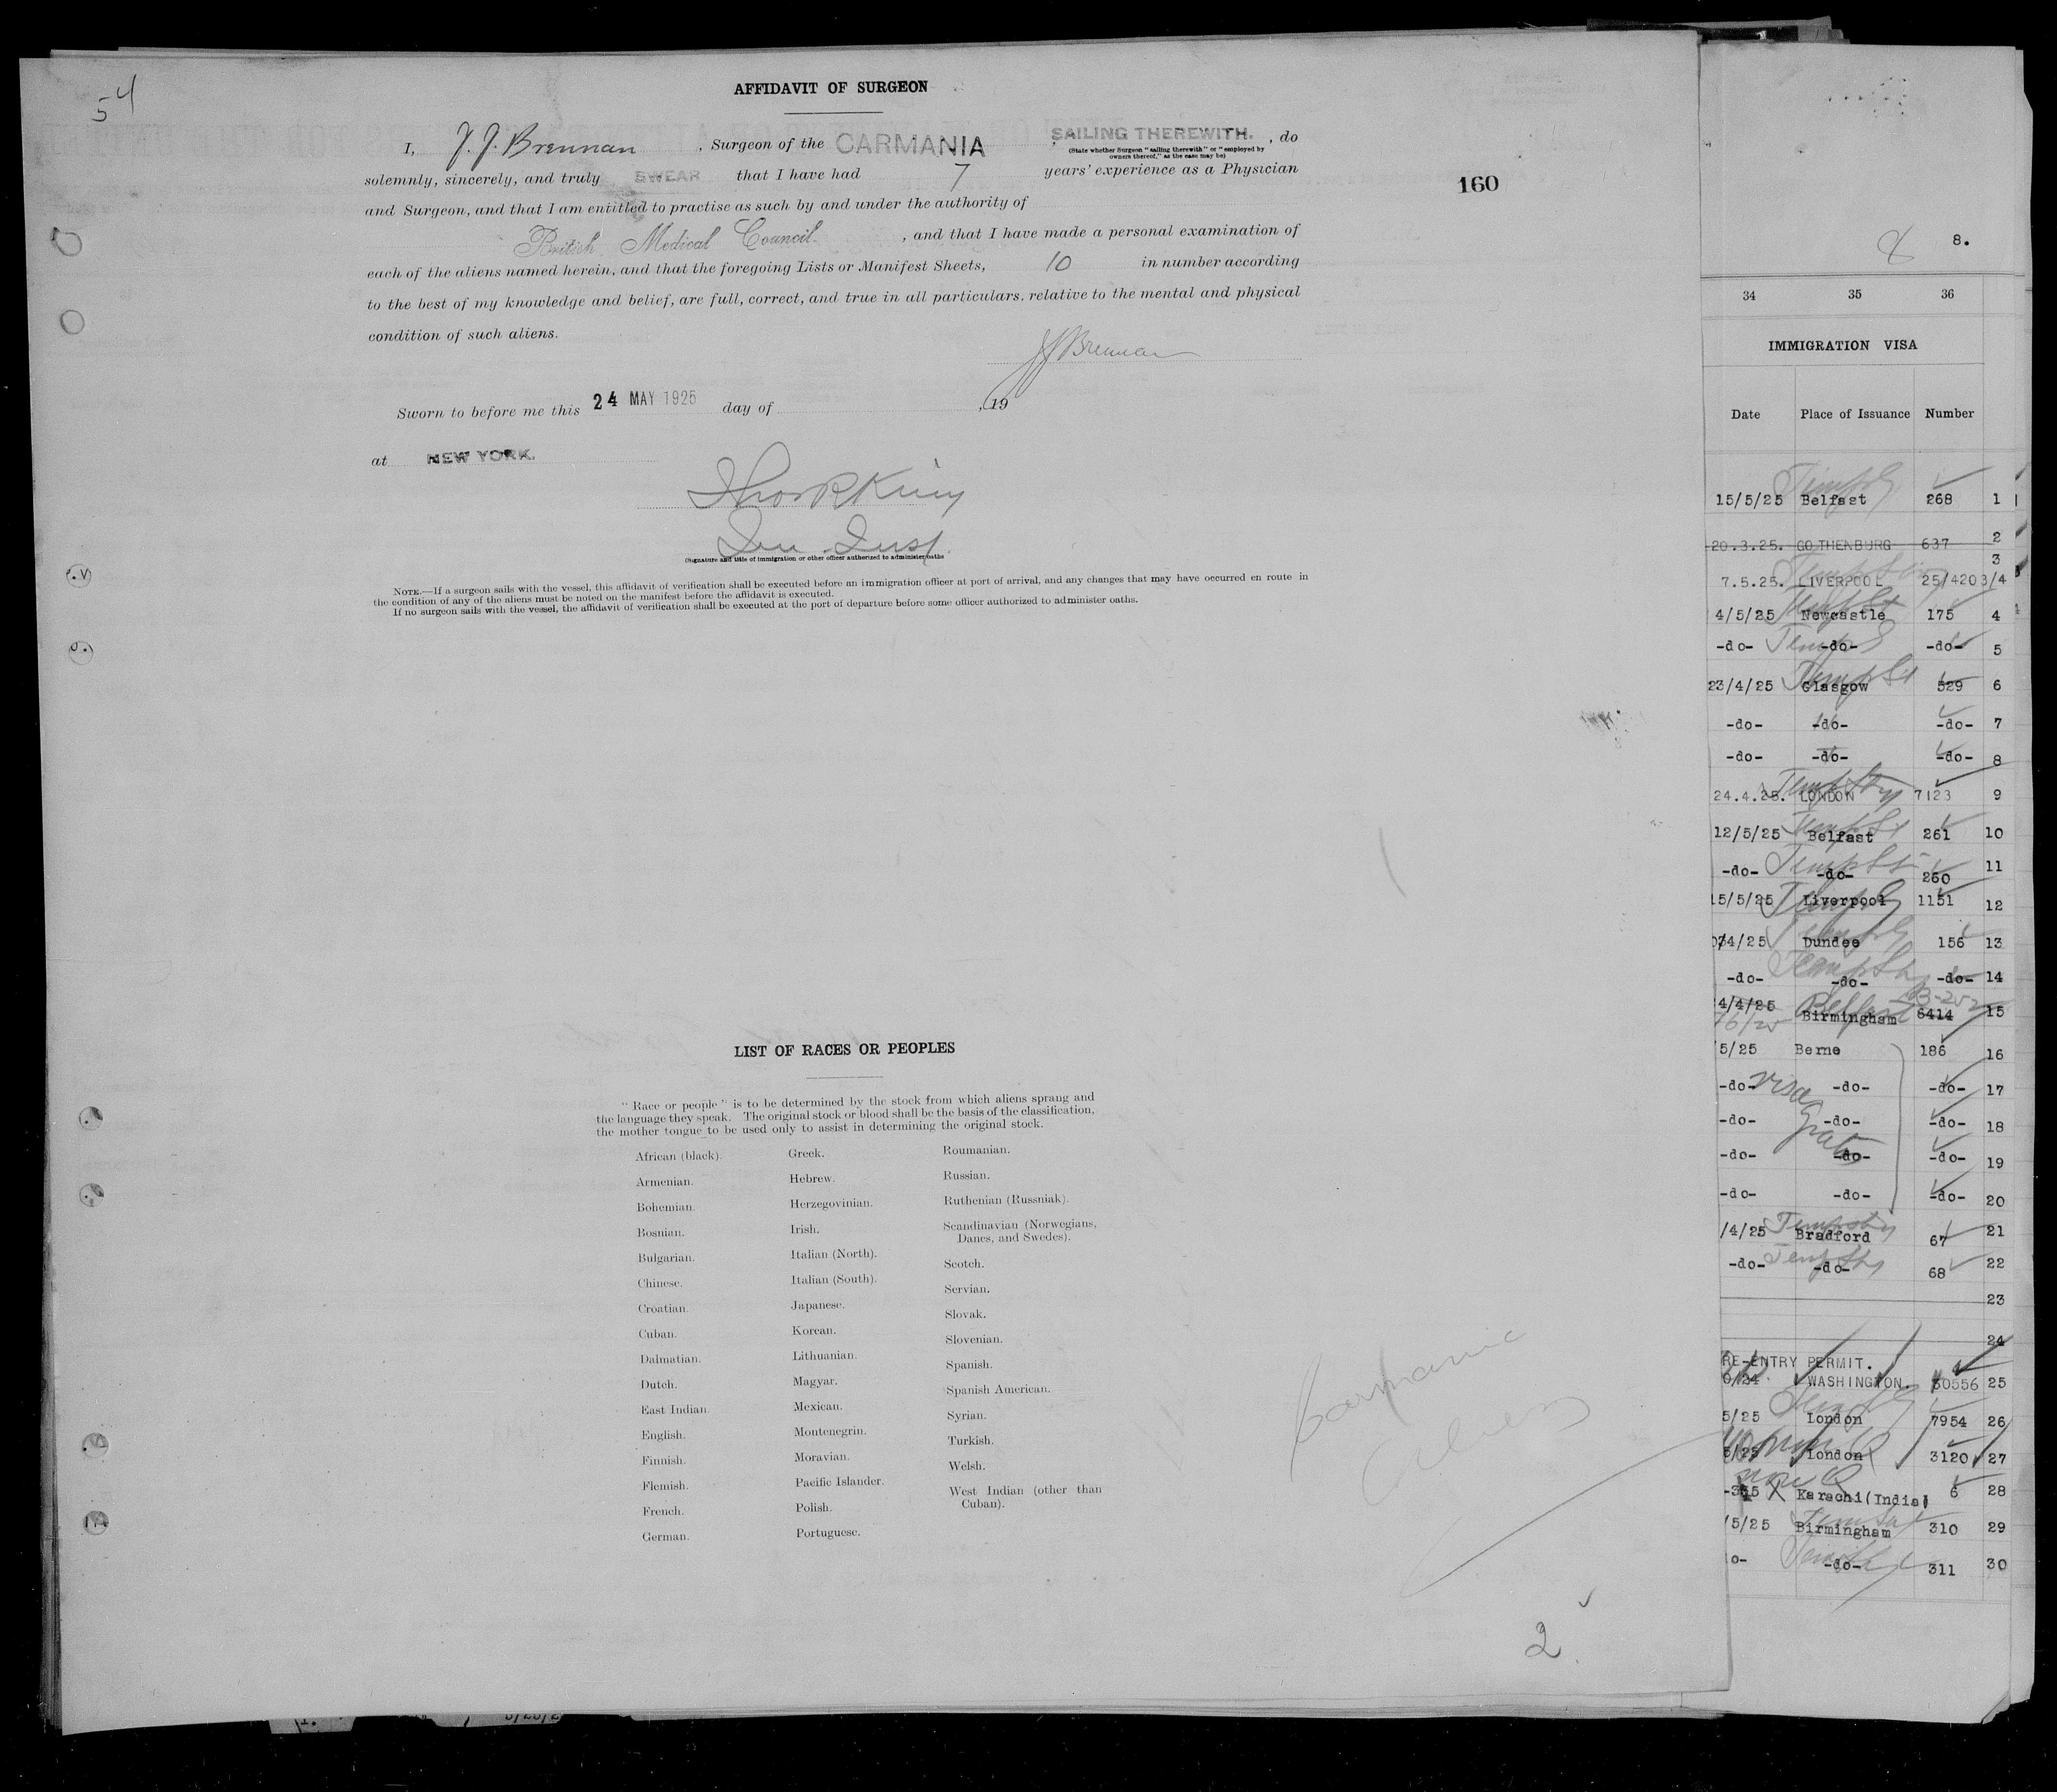 54
AFFIDAVIT OF SURGEON
I, J. J. Brennan, Surgeon of the CARMANIA SAILING THEREWITH., do
(State whether Surgeon "sailing therewith" or "employed by
owners thereof," as the case may be)
solemnly, sincerely, and truly SWEAR that I have had 7 years' experience as a Physician
and Surgeon, and that I am entitled to practise as such by and under the authority of
British Medical Council., and that I have made a personal examination of
each of the aliens named herein, and that the foregoing Lists or Manifest Sheets, 10 in number according
to the best of my knowledge and belief, are full, correct, and true in all particulars. relative to the mental and physical
condition of such aliens.
JJ Brennan
Sworn to before me this 24 MAY 1925 day of , 19
at NEW YORK.
(Signature and title of immigration or other officer authorized to administer oaths
NOTE.—If a surgeon sails with the vessel, this affidavit of verification shall be executed before an immigration officer at port of arrival, and any changes that may have occurred en route in
the condition of any of the aliens must be noted on the manifest before the affidavit is executed.
If no surgeon sails with the vessel, the affidavit of verification shall be executed at the port of departure before some officer authorized to administer oaths.
160
LIST OF RACES OR PEOPLES
"Race or people" is to be determined by the stock from which aliens sprang and
the language they speak. The original stock or blood shall be the basis of the classification,
the mother tongue to be used only to assist in determining the original stock.
African (black).
Armenian.
Bohemian.
Bosnian.
Bulgarian.
Chinese.
Croatian.
Cuban.
Dalmatian.
Dutch.
East Indian.
English.
Finnish.
Flemish.
French.
German.
Greek.
Hebrew.
Herzegovinian.
Irish.
Italian (North).
Italian (South).
Japanese.
Korean.
Lithuanian.
Magyar.
Mexican.
Montenegrin.
Moravian.
Pacific Islander.
Polish.
Portuguese.
Roumanian.
Russian.
Ruthenian (Russniak).
Scandinavian (Norwegians,
Danes, and Swedes).
Scotch.
Servian.
Slovak.
Slovenian.
Spanish.
Spanish American.
Syrian.
Turkish.
Welsh.
West Indian (other than
Cuban).
Carmania
2
8 8.
34 35 36
IMMIGRATION VISA
Date Place of Issuance Number
15/5/25 Belfast 268 1
20.3.25. GOTHENBURG 637 2
3
7.5.25. LIVERPOOL 25/4203/4
4/5/25 Newcastle 175 4
-do- -do- -do- 5
23/4/25 Glasgow 529 6
-do- -do- -do- 7
-do- -do- -do- 8
24.4.25. LONDON 7123 9
12/5/25 Belfast 261 10
-do- -do- 260 11
15/5/25 Liverpool 1151 12
4/25 Dundee 156 13
-do- -do- -do- 14
4/4/25 Belfast
Birmingham 6414 15
5/25 Berne 186 16
-do- visa -do- -do- 17
-do- Gratis -do- -do- 18
-do- -do- -do- 19
-do- -do- -do- 20
/4/25 Bradford 67 21
-do- -do- 68 22
23
24
RE-ENTRY PERMIT.
WASHINGTON. 30556 25
5/25 London 7954 26
5/25 London 3120 27
Karachi(India) 6 28
/5/25 Birmingham 310 29
o- -do- 311 30